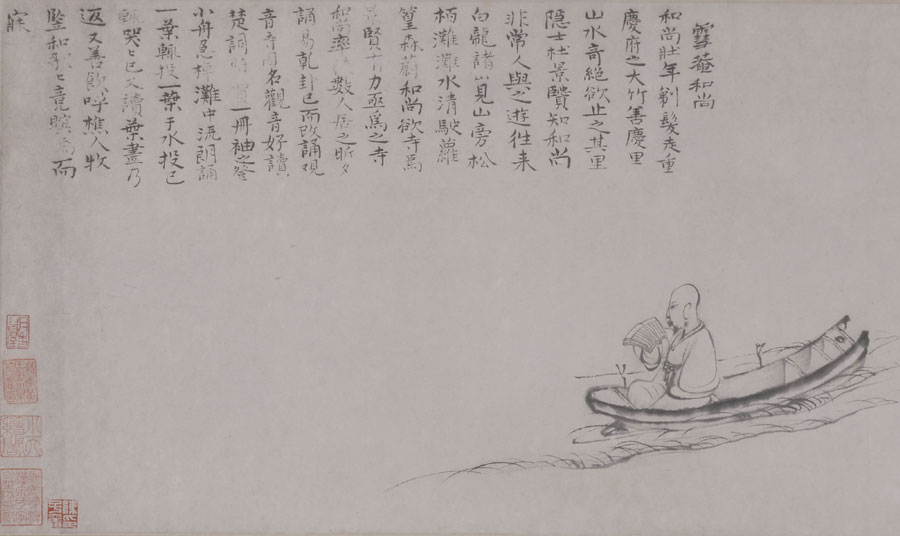 雪菴和尚
和尚壯年剃髮走重
慶府之大竹善慶里
山水奇絕欲止之其里
隱士杜景賢知和尚
非常人與之遊往来
白龍諸山見山旁松
柏灘灘水清駛蘿
篁森蔚和尚欲寺焉
景賢有力亟為之寺
和尚率徒數人居之昕夕
誦易乾卦已而改誦观
音寺因名觀音好讀
楚詞時買一冊袖之登
小舟急棹灘中流朗誦
一葉輒投一葉于水投已
輒哭哭已又讀葉盡乃
返又善飲呼樵人牧
豎和歌歌竟瞑焉而
寐